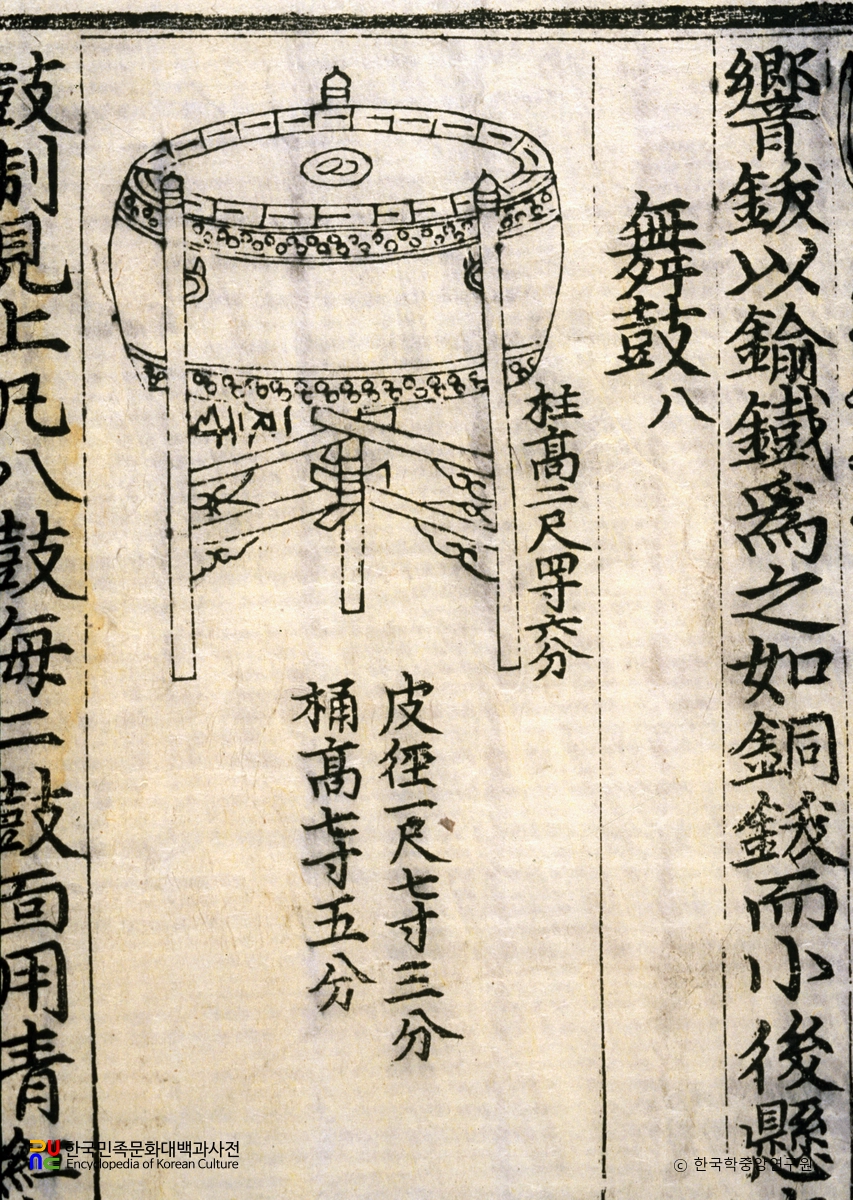 響鈸以鍮鐵爲之如銅鈸而小後懸
舞鼓八
柱高二尺四寸六分
皮徑一尺七寸三分
桶高七寸五分
鼓制見上凡八鼓每二鼓面用青紅
한국민족문화대백과사전
Encyclopedia of Korean Culture
© 한국학중앙연구원